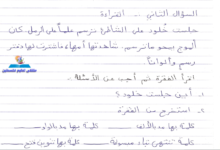 السؤال الثاني - القراءة
جلست خلود على الشاطئ ترسم علماً على الرمل. كان
الموج يمحو ما ترسم. شاهدتها أمها فاشترت لها دفتر
رسم وألواناً
اقرأ الفقرة ثم أجب عن الأسئلة:
١- أين جلست خلود؟
٢- استخرج من الفقرة
كلمة بها مد بالألف كلمة بها مد بالواو
كلمة تنتهي بتاء مبسوطة كلمة بها تنوين فتح